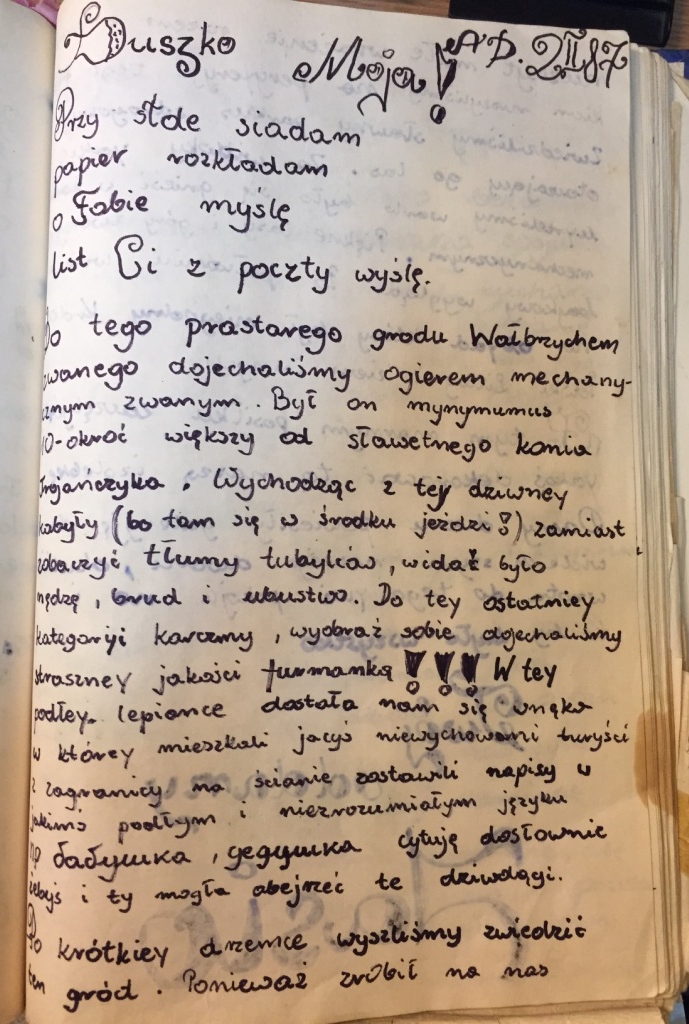 Duszko Moja! AD. 2 II 87
Przy stole siadam
papier rozkładam
o Fabie myślę
list Ci z poczty wyślę.
Do tego prastarego grodu Wałbrzychem
zwanego dojechaliśmy ogierem mechany-
cznym zwanym. Był on mynymumus
10-okroć większy od sławetnego konia
Trojańczyka. Wychodząc z tej dziwney
kobyły (bo tam się w środku jeździ!) zamiast
zobaczyć tłumy tubylców, widać było
nędzę, brud i ubustwo. Do tey ostatniey
kategoryji karczmy, wyobraź sobie dojechaliśmy
straszney jakości furmanką!!! W tey
podłey lepiance dostała nam się wnęka
w którey mieszkali jacyś niewychowani turyści
z zagranicy na ścianie zostawili napisy w
jakimś podłym i niezrozumiałym języku
np бабушка, дедушка cytuję dosłownie
żebyś i ty mogła obejrzeć te dziwolągi.
Po krótkiey drzemce wyszliśmy zwiedzić
ten gród. Ponieważ zrobił na nas